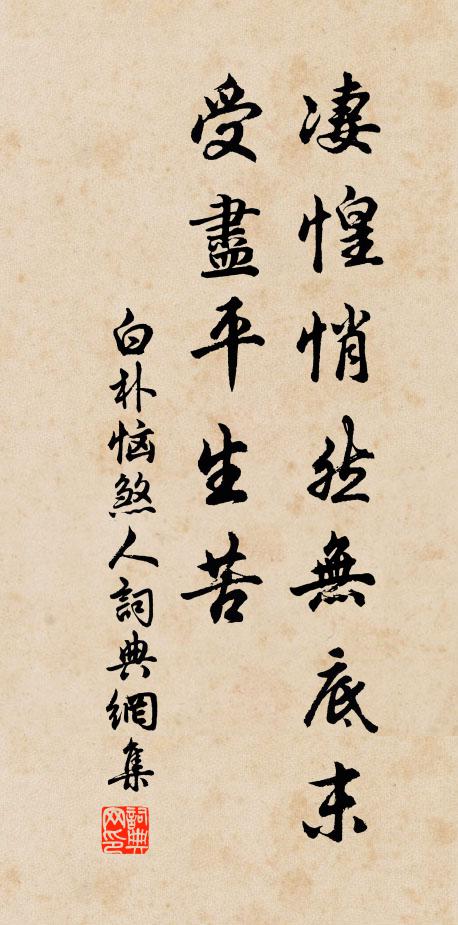 凄惶悄然無底末
受盡平生苦
白朴恼煞人詞典網集
詞典网印